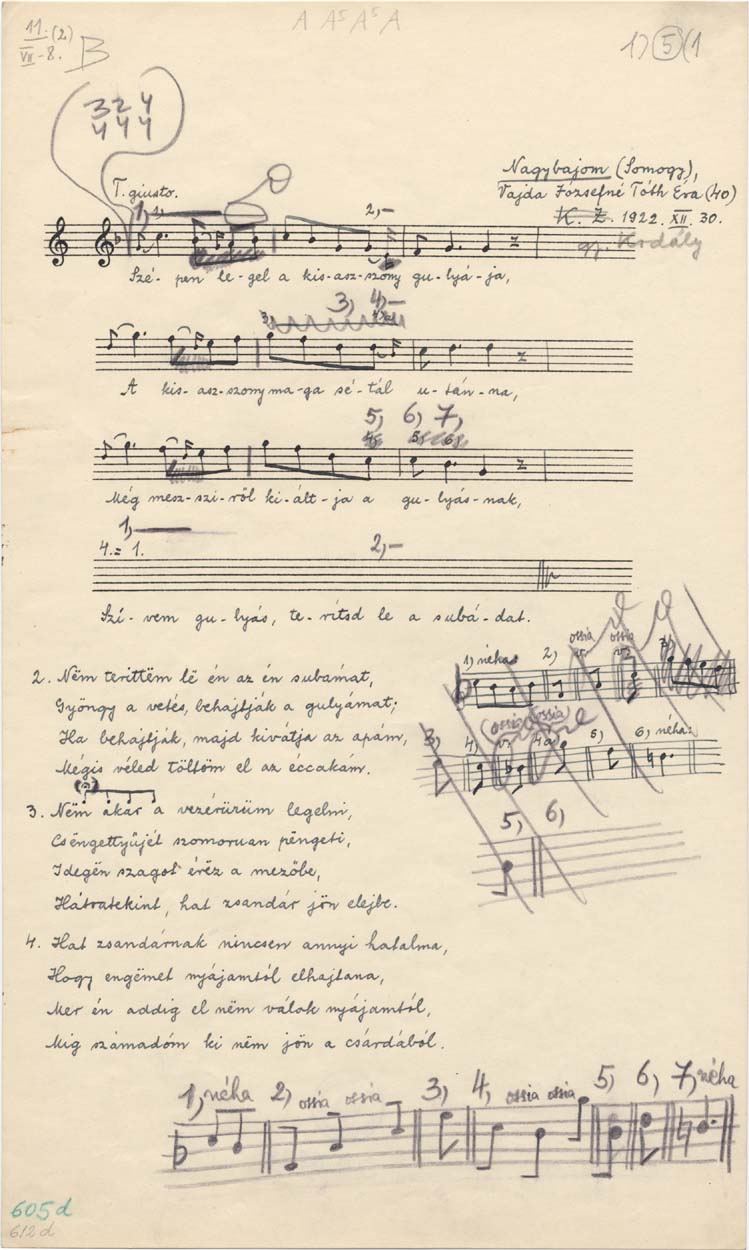 11. (2)
VII-8. B
A A⁵ A⁵ A
1) 5 (1
3 2 4
4 4 4
T. giusto.
Nagybajom (Somogy),
Vajda Józsefné Tóth Éva (40)
K. Z. 1922. XII. 30.
gy. Kodály
1,
2,-
Szé- pen le- gel a kis- asz- szony gu- lyá- ja,
3, 4,-
A kis- asz- szony ma- ga sé- tál u- tán- na,
5, 6, 7,
Még mesz- szi- ről ki- ált- ja a gu- lyás- nak,
1,
4.= 1. 2,-
Szí- vem gu- lyás, te- rítsd le a subá- dat.
2. Nëm terittëm lë én az én subámat,
Gyöngy a vetés, behajtják a gulyámat;
Ha behajtják, majd kivátja az apám,
Mégis véled töltöm el az éccakám.
3. Nëm akar a vezérürüm legelni,
Csëngettyüjét szomoruan pëngeti,
Idegën szagot érëz a mezőbe,
Hátratekint, hat zsandár jön elejbe.
4. Hat zsandárnak nincsen annyi hatalma,
Hogy engëmet nyájamtól elhajtana,
Mer én addig el nëm válok nyájamtól,
Mig számadóm ki nëm jön a csárdából.
1) néha 2) ossia ossia
3) 4) (ossia) (ossia) 4a) 5) 6) néha:
5, 6,
1, néha 2) ossia ossia 3, 4, ossia ossia 5, 6, 7, néha
605d
612d